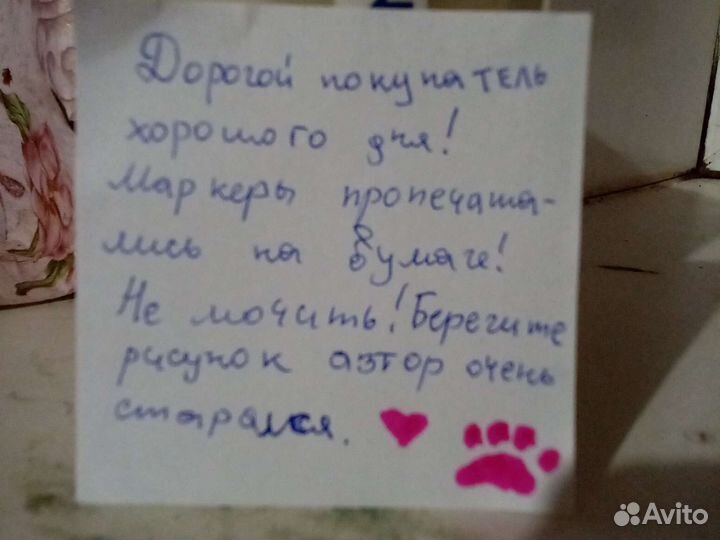 Дорогой покупатель
хорошого дня!
Маркеры пропечата-
лись на бумаге!
Не мочить! Берегите
рисунок автор очень
старался.
Avito